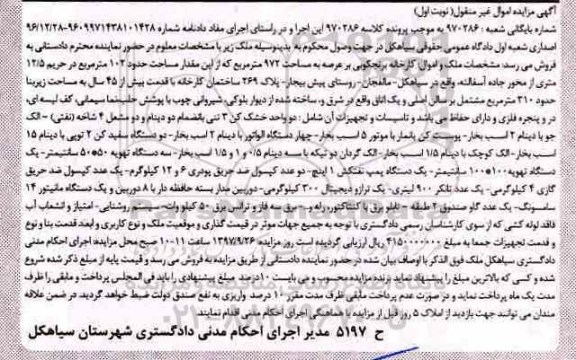 آگهی مزایده اموال غیر منقول( نوبت اول)
شماره بایگانی شعبه : ۹۷۰۲۸۶ به موجب پرونده کلاسه ۹۷۰۲۸۶ این اجرا و در راستای اجرای مفاد دادنامه شماره ۹۶۰۹۹۷۱۴۳۸۱۰۱۴۲۸-۹۶/۱۲/۲۸
اصداری شعبه اول دادگاه عمومی حقوقی سیاهکل در جهت وصول محکوم به بدینوسیله ملک زیر با مشخصات معلوم در حضور نماینده محترم دادستانی به
فروش می رسد: مشخصات ملک و اموال کارخانه برنجکوبی بر عرصه به مساحت ۹۷۲ مترمربع که از این مقدار مساحت حدود ۱۰۲ مترمربع در حریم ۱۲/۵
متری از محور جاده آسفالته، واقع در سیاهکل- مالفجان- روستای پیش بیجار- پلاک ۲۶۹ ساختمان کارخانه با قدمت بیش از ۴۵ سال به مساحت زیربنا
حدود ۳۱۰ مترمربع مشتمل بر سالن اصلی و یک اتاق واقع در شرق و، ساخته شده از دیوار بلوکی، شیروانی چوب با پوشش حلب،نما سیمانی، کف لیسه ای،
در و پنجره فلزی و دارای حفاظ می باشد و تاسیسات و تجهیزات آن شامل : دو واحد خشک کن ۳ تنی بانضمام دو دینام و دو مشعل ۴ شاخه (نفتی) - الک
جو با دینام ۲ اسب بخار- پوست کن یانمار با موتور ۵ اسب بخار- چهار دستگاه الواتور با دینام ۲ اسب بخار- دو دستگاه سفید کن ۲ توپی با دینام ۱۵
اسب بخار- الک کوچک با دینام ۱/۵ اسب بخار- الک گردان دو تیکه با سه دینام ۰/۵ و ۱ و ۱/۵ اسب بخار- سه دستگاه تهویه ۵۰*۵۰ سانتیمتر- یک
دستگاه تهویه ۱۰۰*۱۰۰ سانتیمتر- یک دستگاه پمپ نفتکش ۱ اینچ- دو عدد کپسول ضد حریق پودری ۶ و ۱۲ کیلوگرم- یک عدد کپسول ضد حریق
گازی ۴ کیلوگرمی- یک عدد تانکر ۹۰۰ لیتری- یک ترازو دیجیتال ۳۰۰ کیلوگرمی- دوربین مدار بسته حافظه دار با ۸ دوربین و یک دستگاه مانیتور ۱۴
سامسونگ- یک عدد گاو صندوق ۲ طبقه - تابلو برق با کنتاکتور، رله و..- برق سه فاز و ترانس برق ۵۰ کیلو وات- سیستم روشنایی- امتیاز و انشعاب آب
فاقد لوله کشی که از سوی کارشناسان رسمی دادگستری با توجه به جمیع جهات موثر در قیمت گذاری و موقعیت ملک و نوع کاربری و ابعد قدمت بنا و نوع
و قدمت تجهیزات جمعا به مبلغ ۴۱۵۰۰۰۰۰۰۰ ریال ارزیابی گردیده است روز مزایده: ۱۳۹۷/۹/۲۶ ساعت ۱۰-۱۱ صبح محل مزایده: اجرای احکام مدنی
دادگستری سیاهکل ملک فوق الذکر با اوصاف بیان شده و در حضور نماینده دادستانی از طریق مزایده به فروش می رسد و قیمت پایه از مبلغ ذکر شده شروع
شده و کسی که بالاترین مبلغ را پیشنهاد نماید برنده مزایده محسوب و می بایست ۱۰درصد مبلغ پیشنهادی را باید فی المجلس پرداخت و مابقی را ظرف
مدت یک ماه پرداخت نماید و در صورت عدم پرداخت مابقی ظرف مدت مقرر ۱۰ درصد واریزی به نفع صندق دولت ضبط خواهد گردید. در ضمن علاقه
مندان می توانند جهت بازدید از املاک ۵ روز قبل از مزایده با هماهنگی اجرای احکام مدنی اقدام نمایند.
ح ۵۱۹۷ مدیر اجرای احکام مدنی دادگستری شهرستان سیاهکل